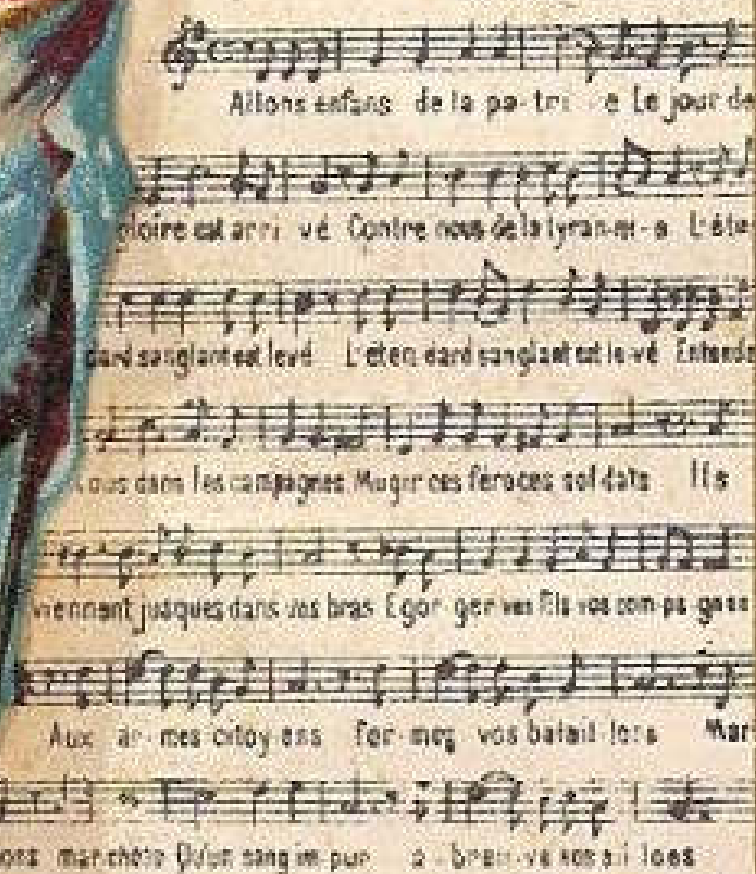 Allons enfans de la pa-tri e Le jour de
gloire est arri vé Contre nous de la tyran-ni-e L'éte
dard sanglant est levé L'éten dard sanglant est le vé Entende
vous dans les campagnes Mugir ces féroces soldats Ils
viennent jusques dans vos bras Egor ger vos fils vos com-pa-gnes
Aux ar-mes citoy-ens for-mez vos batail-lons Mar
ons marchons Qu'un sang im pur a-breu-ve nos si lons